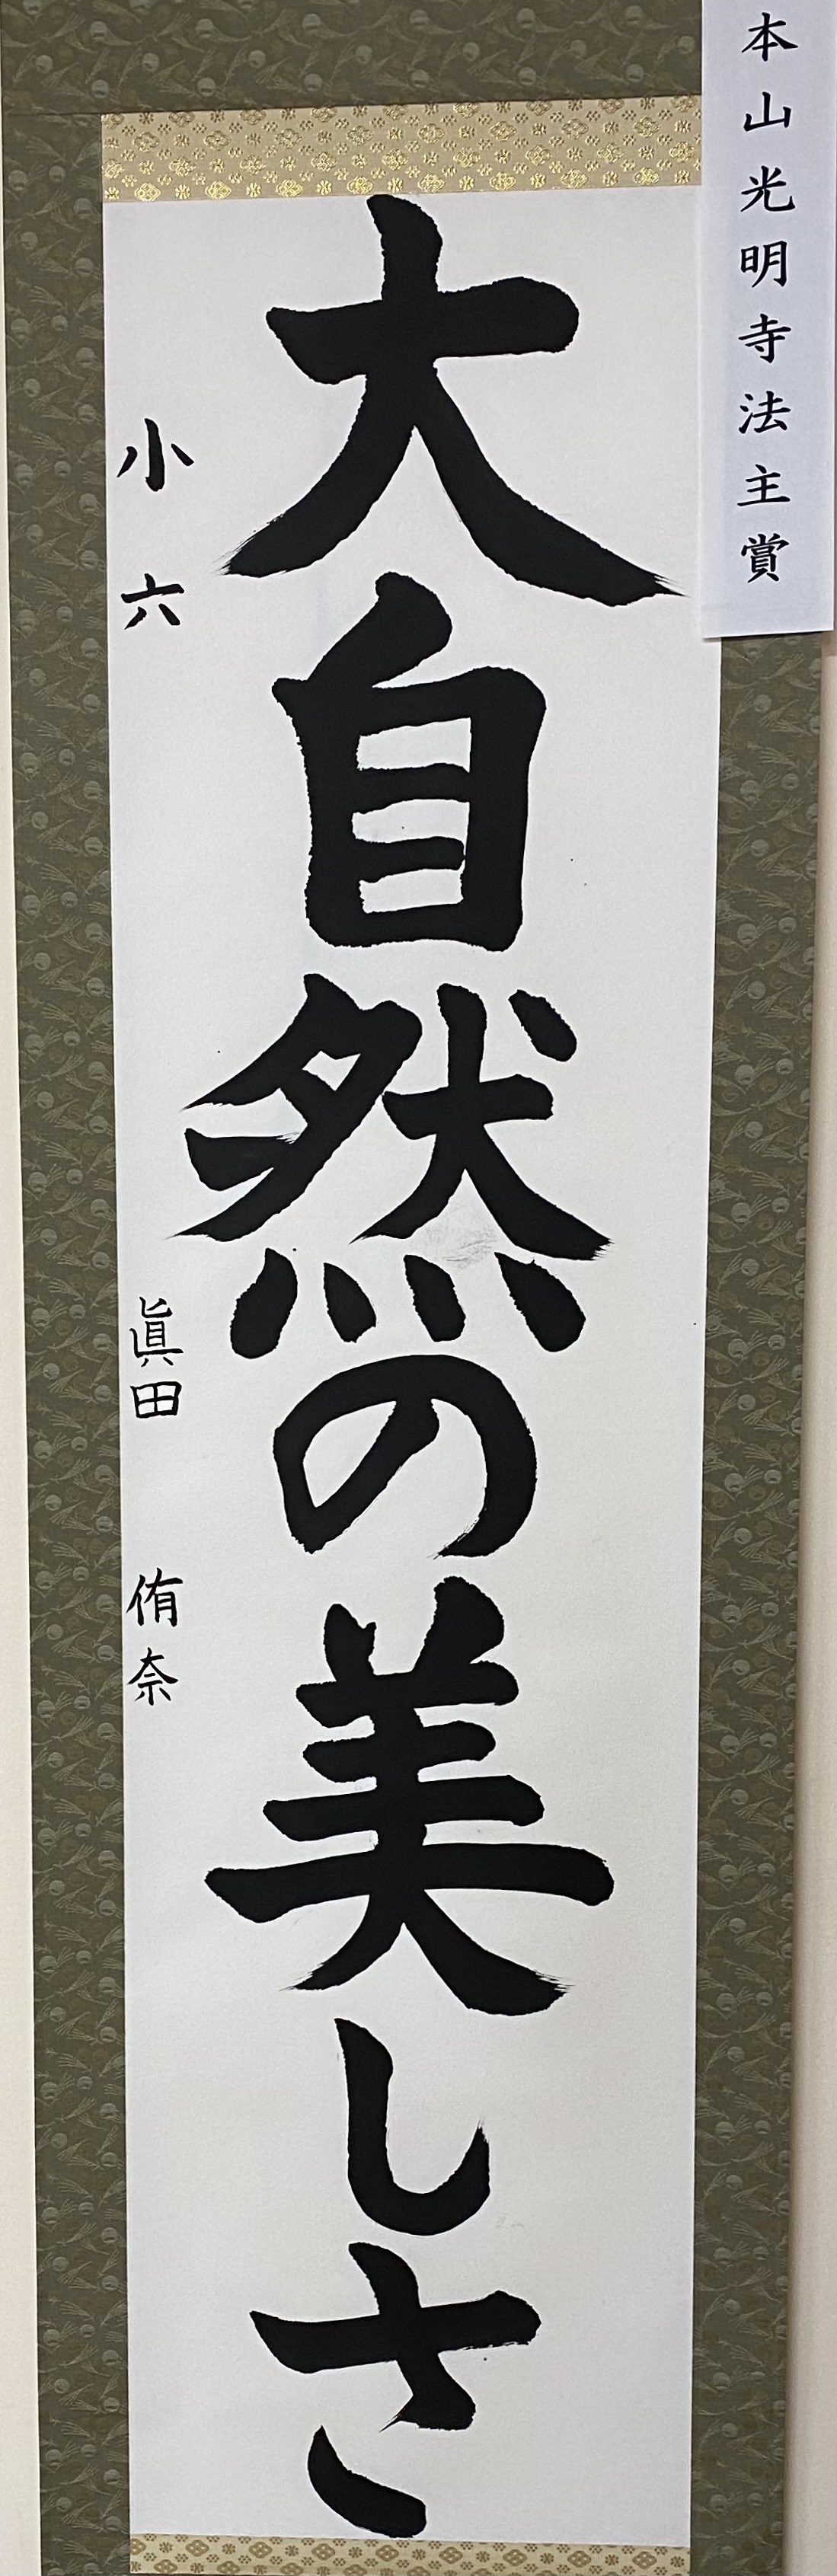 本山光明寺法主賞
大自然の美しさ
小六 眞田 侑奈